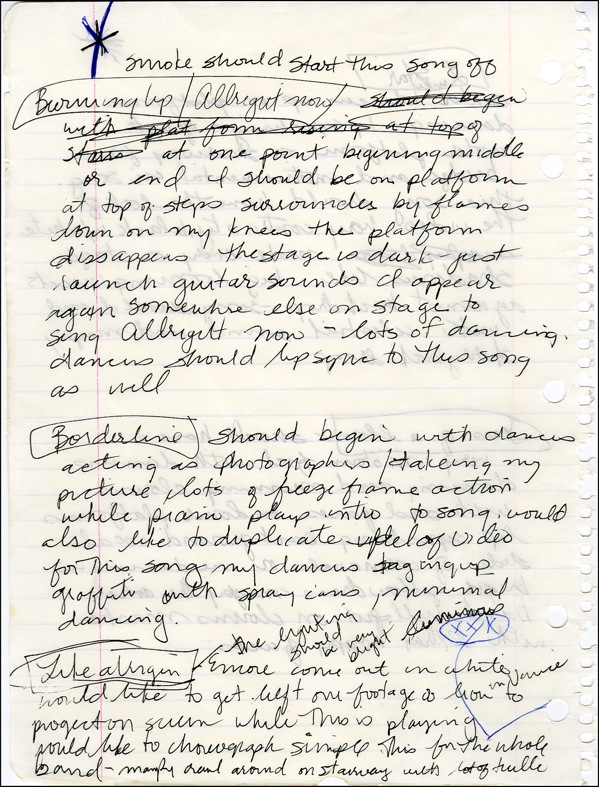 smoke should start this song off
Burning Up / Allright now / should begin
with plat form rising at top of
stairs at one point beginning middle
or end I should be on platform
at top of steps surroundes by flames
down on my knees the platform
dissappears the stage is dark - just
raunch guitar sounds I appear
again somewhre else on stage to
sing Allright now - lots of dancing.
dancers should lip sync to this song
as well
Borderline should begin with dancers
acting as photographers / takeing my
picture lots of freeze frame action
while piano plays intro to song. would
also like to duplicate of video
for this song my dancers tagging up
graffiti with spray cans, minimal
dancing.
the lighting should be very bright luminous
XXX
Like a Virgin emore come out in white
would like to get left over footage of lion in Venice to
project on screen while this is playing
would like to choreograph simple this for the whole
band - maybe crawl around on stairway with lots of tulle